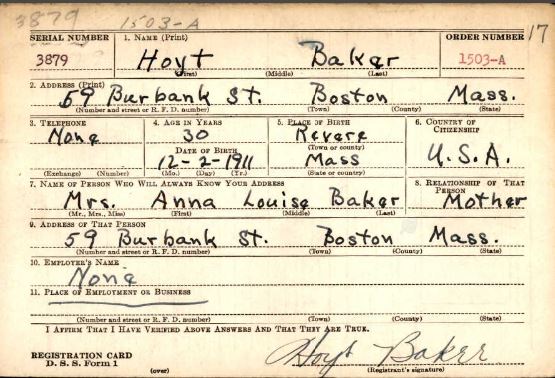 3879 1503-A
17
SERIAL NUMBER 1. NAME (Print) ORDER NUMBER
3879 Hoyt Baker 1503-A
(First) (Middle) (Last)
2. ADDRESS (Print)
59 Burbank St. Boston Mass.
(Number and street or R. F. D. number) (Town) (County) (State)
3. TELEPHONE 4. AGE IN YEARS 5. PLACE OF BIRTH 6. COUNTRY OF CITIZENSHIP
None 30 Revere
DATE OF BIRTH (Town or county)
12-2-1911 Mass U.S.A.
(Exchange) (Number) (Mo.) (Day) (Yr.) (State or country)
7. NAME OF PERSON WHO WILL ALWAYS KNOW YOUR ADDRESS 8. RELATIONSHIP OF THAT PERSON
Mrs. Anna Louise Baker Mother
(Mr., Mrs., Miss) (First) (Middle) (Last)
9. ADDRESS OF THAT PERSON
59 Burbank St. Boston Mass.
(Number and street or R. F. D. number) (Town) (County) (State)
10. EMPLOYER'S NAME
None
11. PLACE OF EMPLOYMENT OR BUSINESS
(Number and street or R. F. D. number) (Town) (County) (State)
I AFFIRM THAT I HAVE VERIFIED ABOVE ANSWERS AND THAT THEY ARE TRUE.
REGISTRATION CARD
D. S. S. Form 1
(over)
Hoyt Baker
(Registrant's signature)